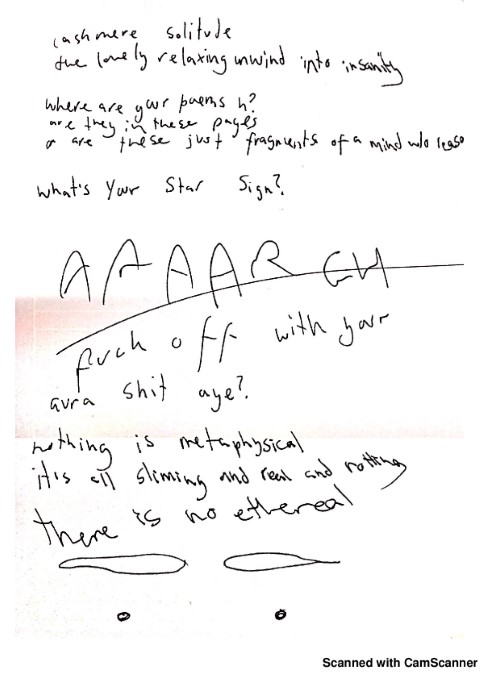 cashmere solitude
the lovely relaxing unwind into insanity
where are your poems h?
are they in these pages
or are these just fragments of a mind w/o
what's your star sign?
AAAAR GH
fuck off with your
aura shit aye?
nothing is metaphysical
it's all sliming and real and rotting
there is no ethereal
Scanned with CamScanner